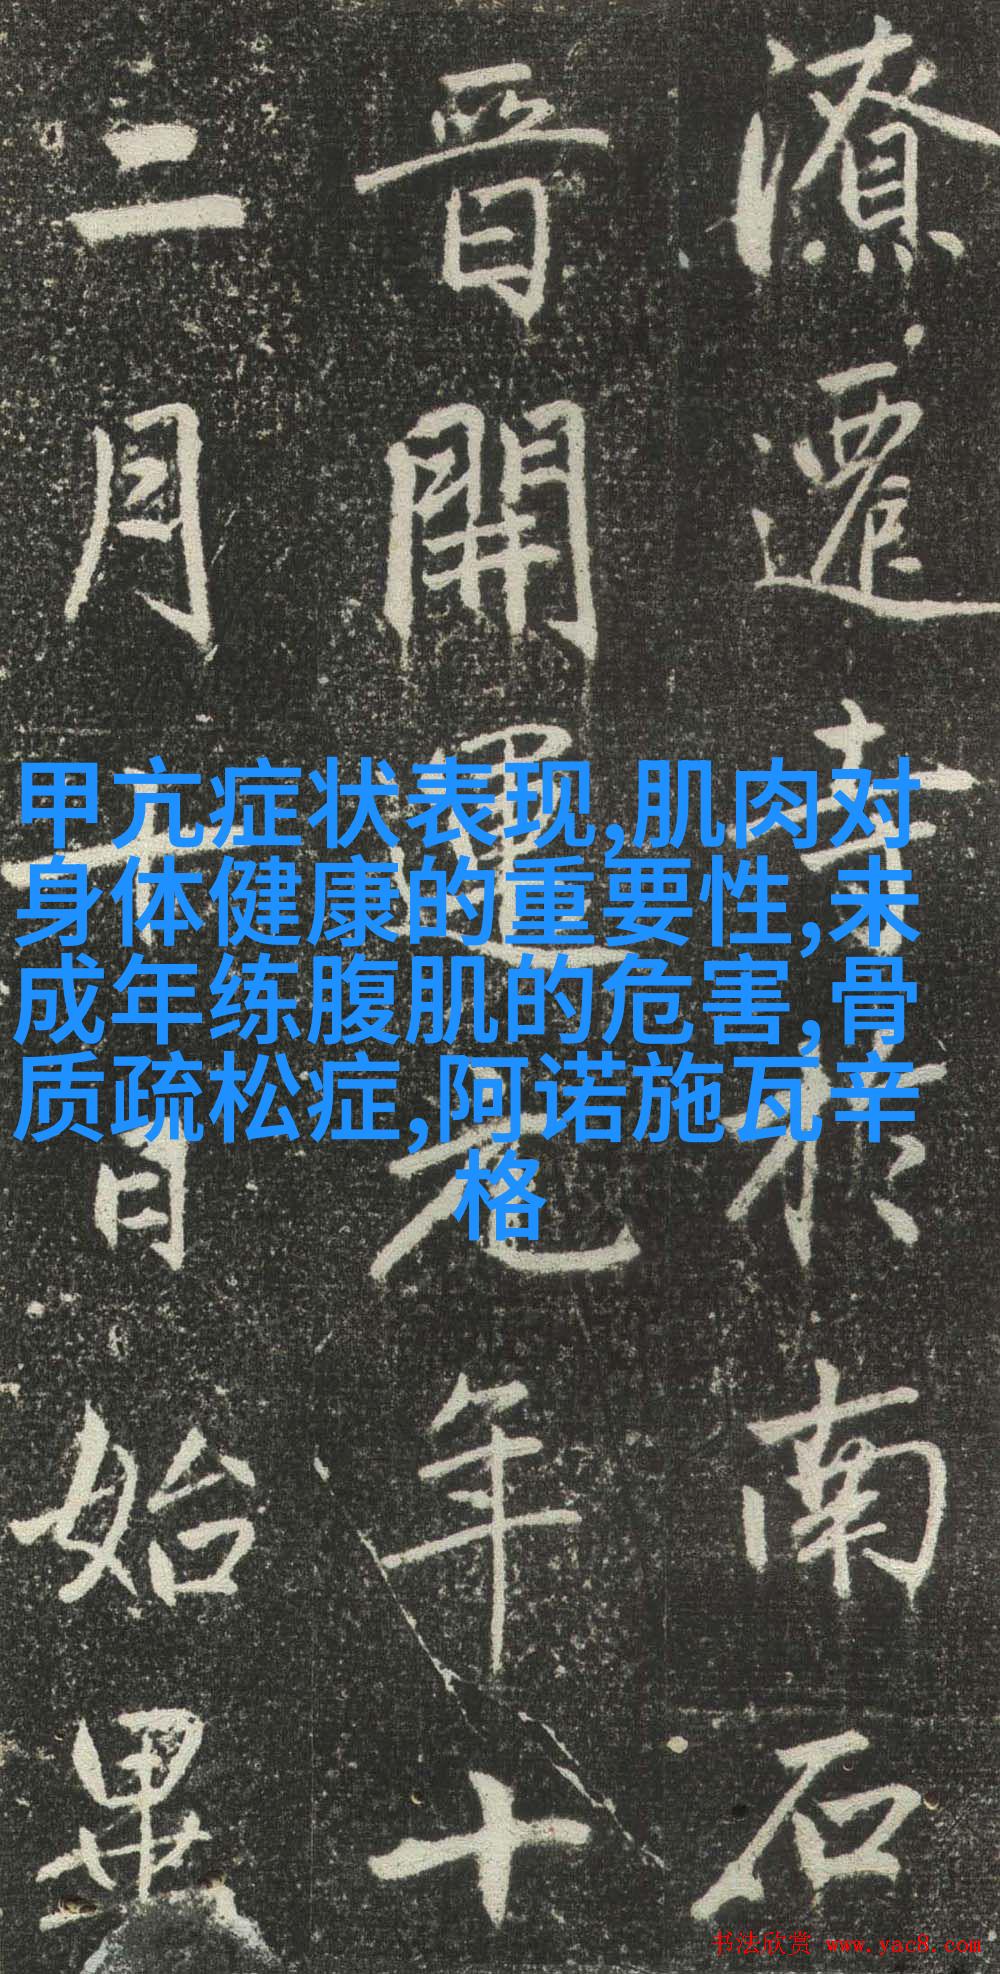 潦遷寺於南石
晉開運元年十
二月十日始畢
甲亢症状表现,肌肉对
身体健康的重要性,未
成年练腹肌的危害,骨
质疏松症,阿诺施瓦辛
格
书法欣赏 www.yac8.com